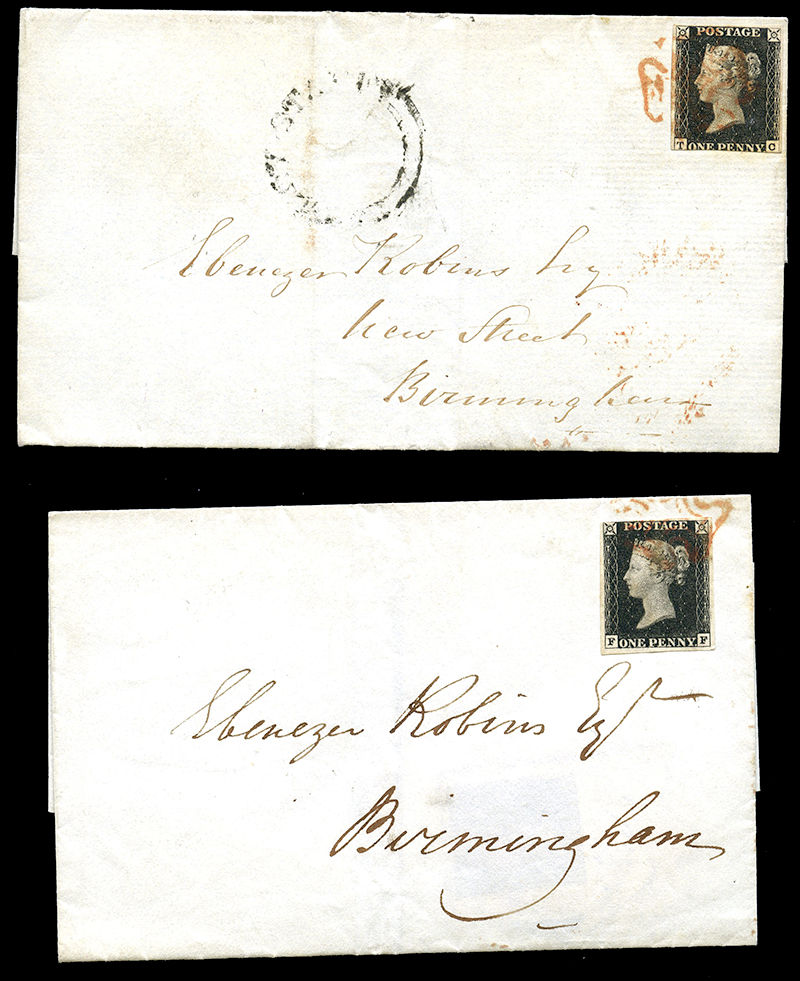 POSTAGE
T ONE PENNY C
Ebenezer Robins Esq
New Street
Birmingham
POSTAGE
F ONE PENNY F
Ebenezer Robins Esqr
Birmingham